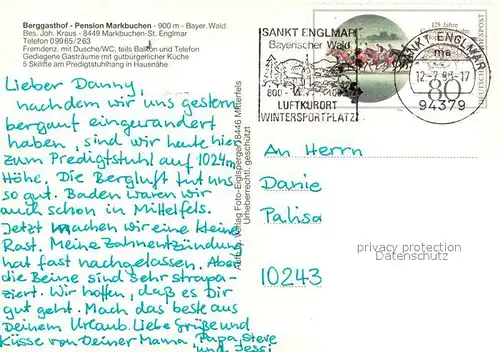 Berggasthof - Pension Markbuchen - 900 m - Bayer. Wald
Bes. Joh. Kraus - 8449 Markbuchen-St. Englmar
Telefon 09965/263
Fremdenz. mit Dusche/WC, teils Balkon und Telefon
Gediegene Gasträume mit gutbürgerlicher Küche
5 Skilifte am Predigtstuhlhang in Hausnähe
Lieber Danny,
nachdem wir uns gestern
bergauf eingewandert
haben, sind wir heute hier
zum Predigtstuhl auf 1024m
Höhe. Die Bergluft tut uns
so gut. Baden waren wir
auch schon in Mittelfels.
Jetzt machen wir eine kleine
Rast. Meine Zahnentzündung
hat fast nachgelassen. Aber
die Beine sind sehr strapa-
ziert. Wir hoffen, daß es Dir
gut geht. Mach das beste aus
Deinem Urlaub. Liebe Grüße und
Küsse von Deiner Mama, Papa, Steve
und Jessi
Verlag Foto-Eiglsperger, 8446 Mitterfels
Urheberrechtl. geschützt
SANKT ENGLMAR
Bayerischer Wald
800 -
LUFTKURORT
WINTERSPORTPLATZ
125 Jahre
80
SANKT ENGLMAR
ma
94379
An Herrn
Danie
Palisa
10243
privacy protection
Datenschutz